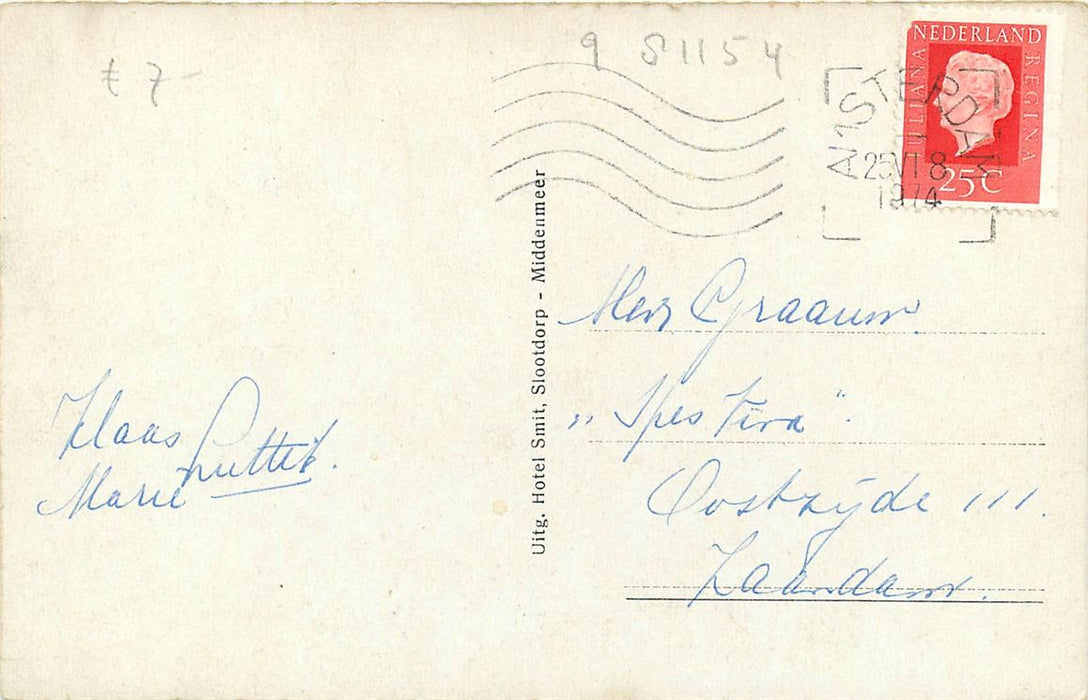 7-
9 81154
NEDERLAND
JULIANA
REGINA
25C
AMSTERDAM
25 VI 8
1974
Uitg. Hotel Smit, Slootdorp - Middenmeer
Klaas
Marie Luttik.
Graauw.
„Spes Viva".
Oostzijde 111.
Zaandam.